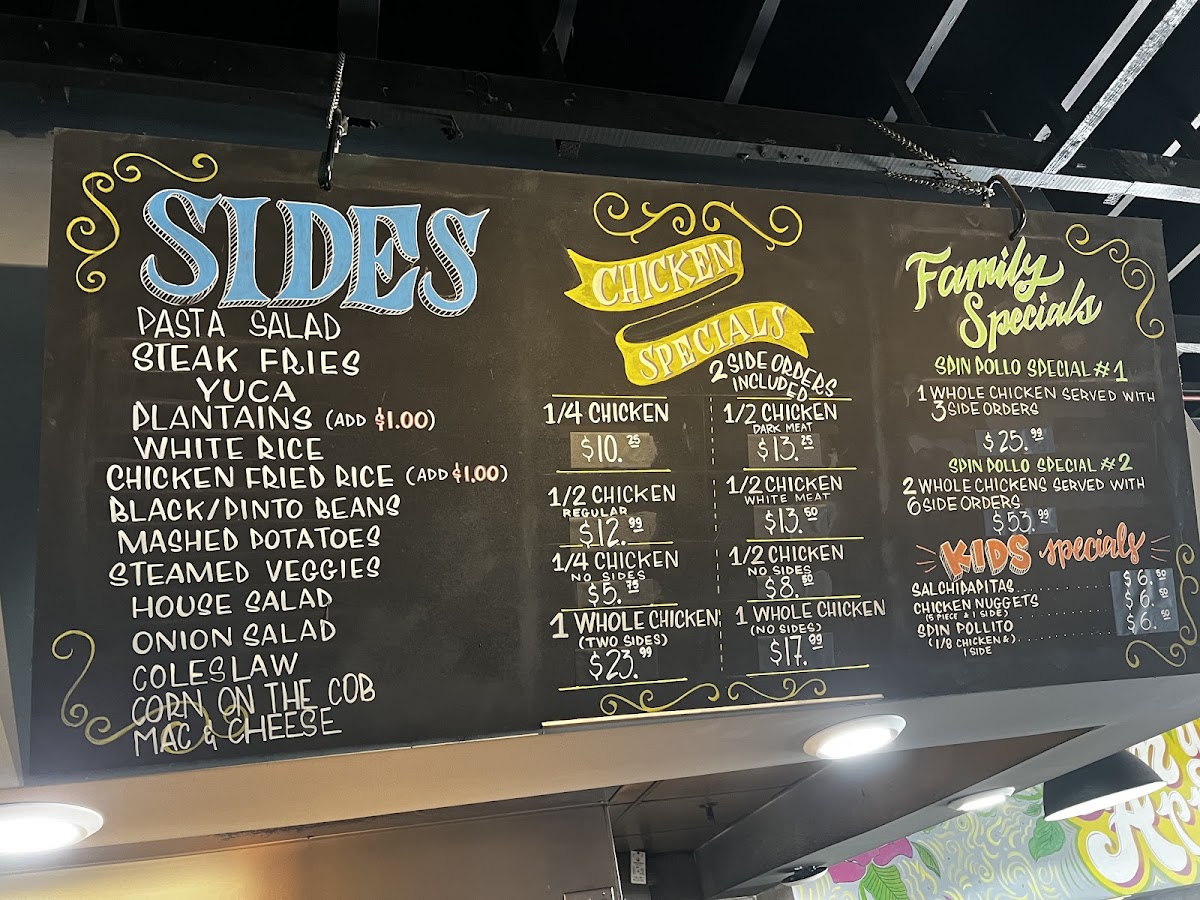 SIDES
PASTA SALAD
STEAK FRIES
YUCA
PLANTAINS (ADD $1.00)
WHITE RICE
CHICKEN FRIED RICE (ADD $1.00)
BLACK/PINTO BEANS
MASHED POTATOES
STEAMED VEGGIES
HOUSE SALAD
ONION SALAD
COLESLAW
CORN ON THE COB
MAC & CHEESE
CHICKEN
SPECIALS
2 SIDE ORDERS
INCLUDED
1/4 CHICKEN
$10.25
1/2 CHICKEN
REGULAR
$12.99
1/4 CHICKEN
NO SIDES
$5.75
1 WHOLE CHICKEN
(TWO SIDES)
$23.99
1/2 CHICKEN
DARK MEAT
$13.25
1/2 CHICKEN
WHITE MEAT
$13.50
1/2 CHICKEN
NO SIDES
$8.50
1 WHOLE CHICKEN
(NO SIDES)
$17.99
Family
Specials
SPIN POLLO SPECIAL #1
1 WHOLE CHICKEN SERVED WITH
3 SIDE ORDERS
$25.99
SPIN POLLO SPECIAL #2
2 WHOLE CHICKENS SERVED WITH
6 SIDE ORDERS
$53.99
KIDS specials
SALCHIPAPITAS........... $6.50
CHICKEN NUGGETS ........... $6.50
(5 PIECE & 1 SIDE)
SPIN POLLITO ........... $6.50
(1/8 CHICKEN &)
1 SIDE